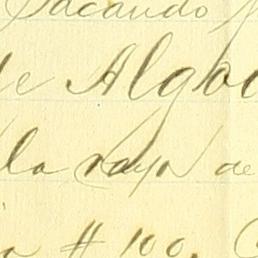 Sacando
de Algod
la raya de
# 100.